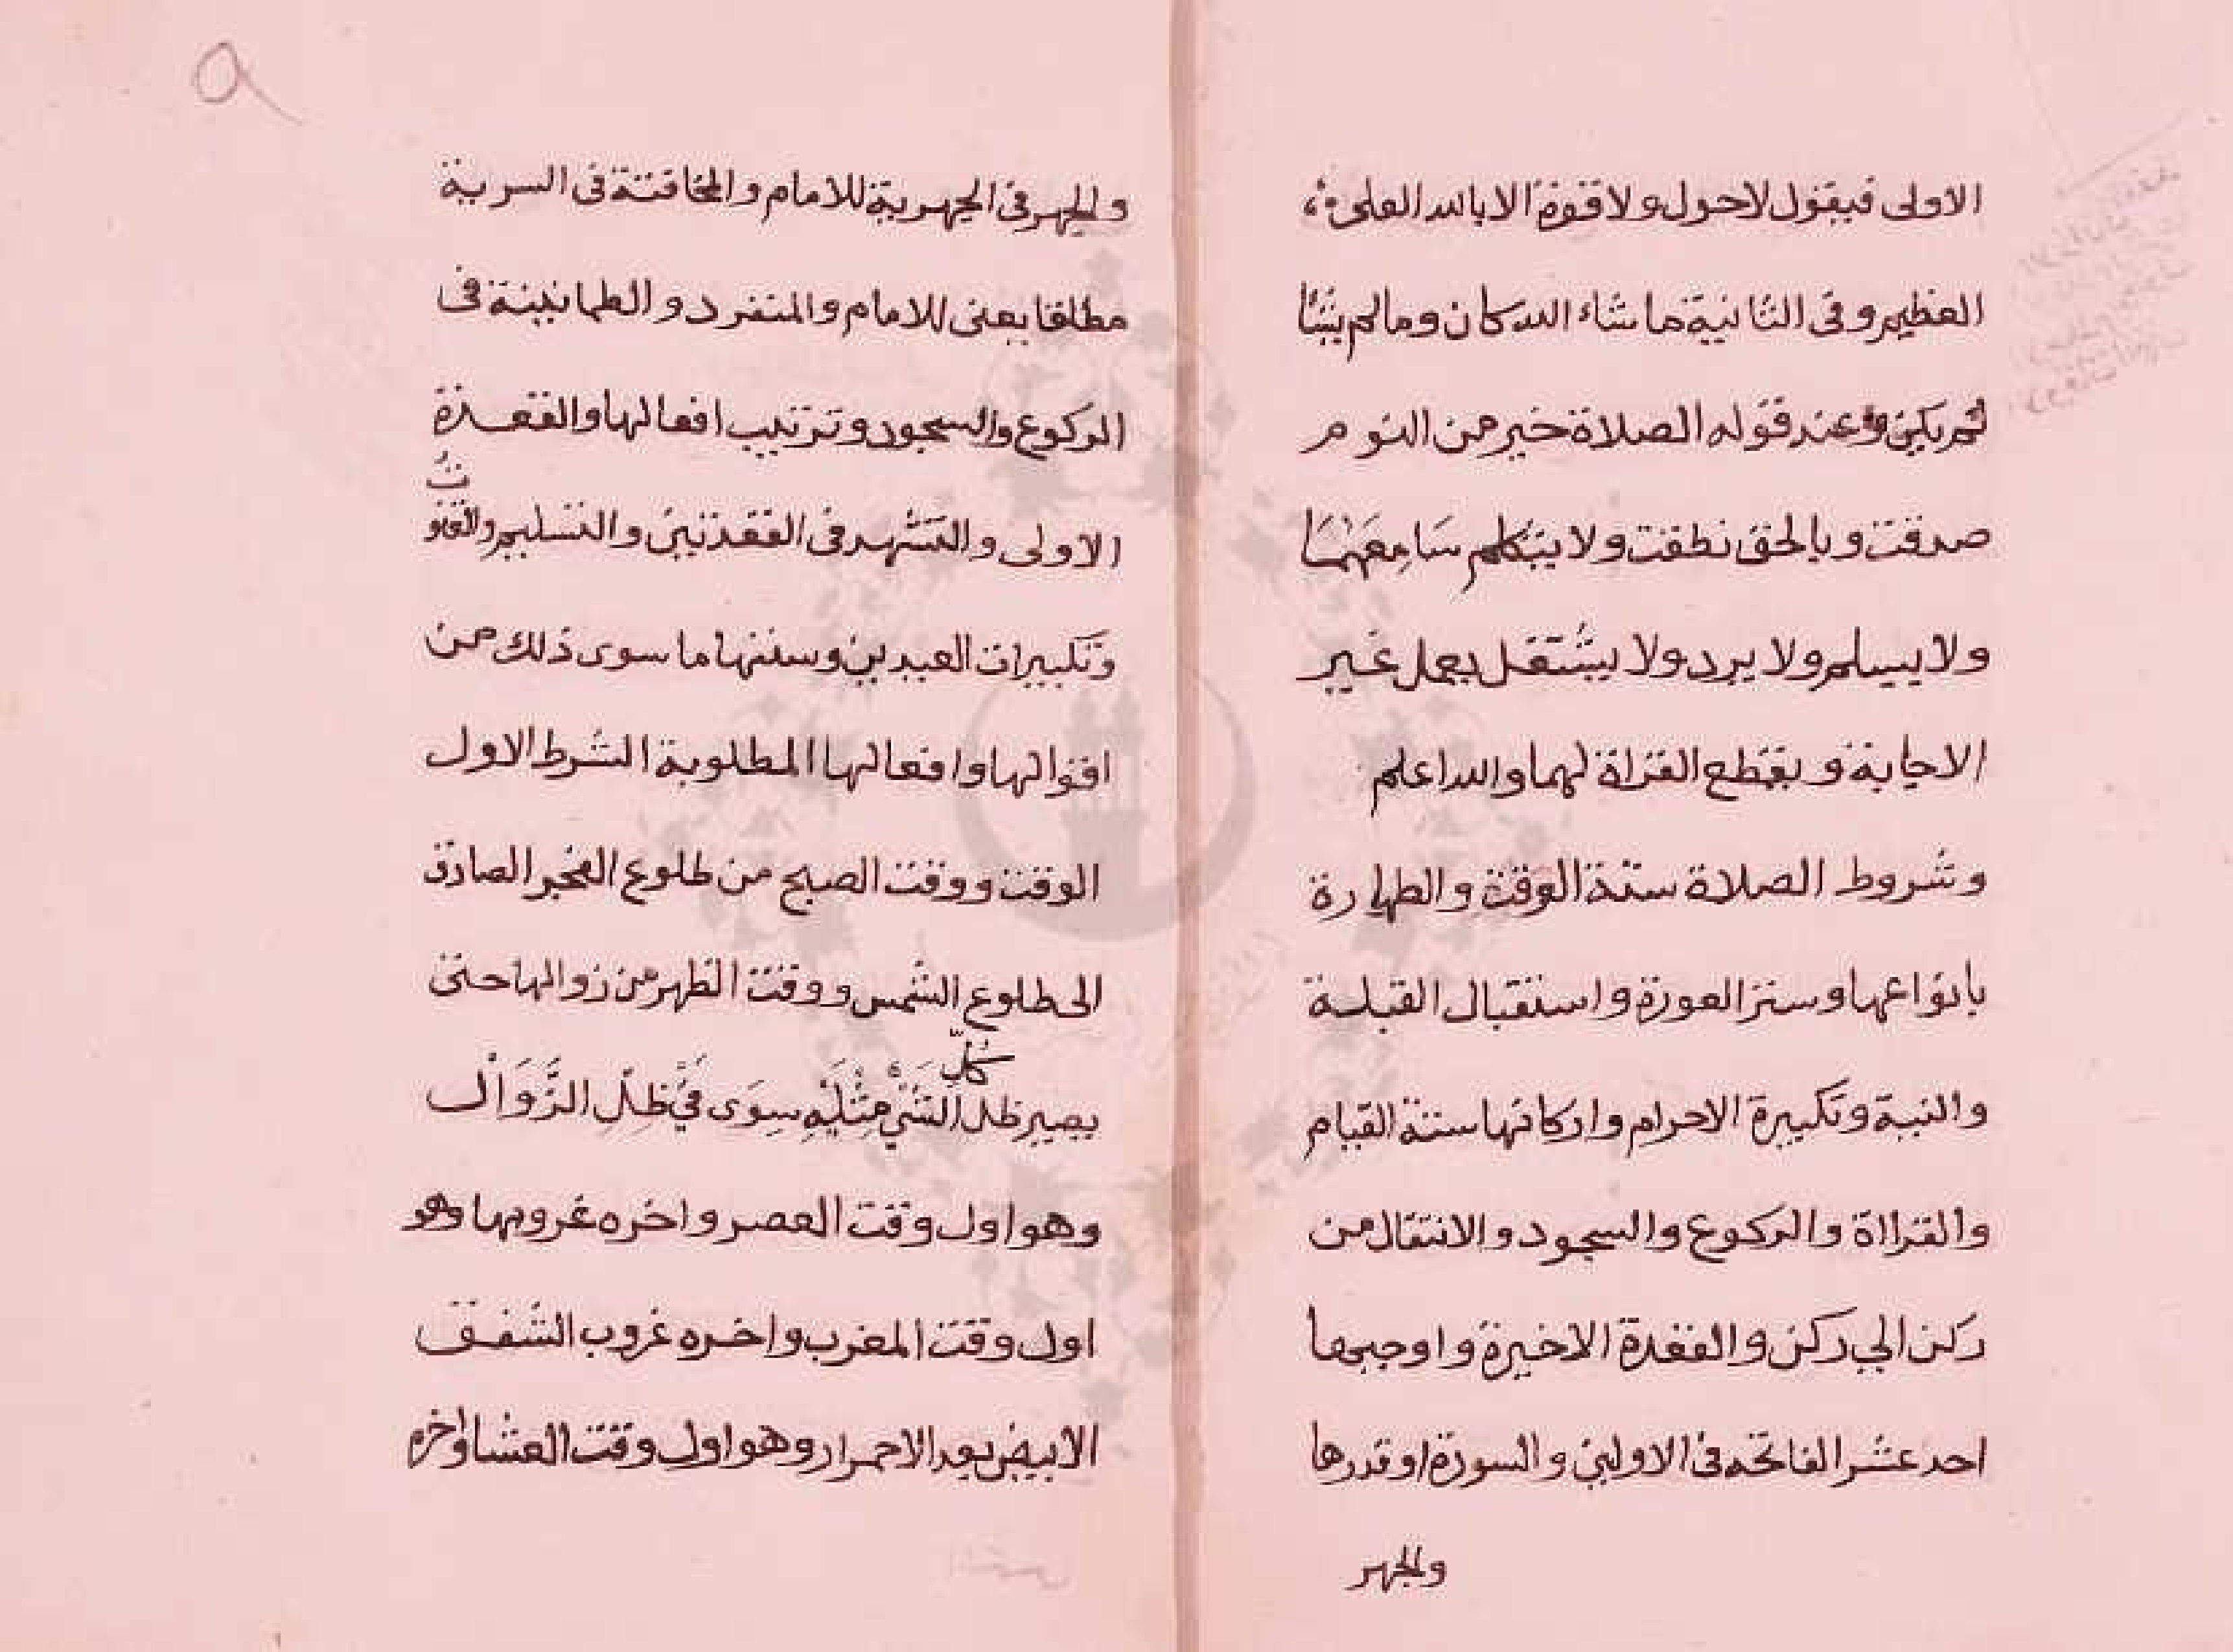 الاولى فيقول لاحول ولا قوة الا بالله العلى
العظيم وفى الثانية ما شاء الله كان وما لم يشا
لم يكن وعند قوله الصلاة خير من النوم
صدقت وبالحق نطقت ولا يتكلم سَامِعَهُمَا
ولا يسلم ولا يرد ولا يشتغل بعمل غير
الاجابة ويقطع القراة لهما والله اعلم
وشروط الصلاة ستة الوقت والطهارة
بأنواعها وستر العورة واستقبال القبلة
والنية وتكبيرة الاحرام واركانها ستة القيام
والقرااة والركوع والسجود والانتقال من
ركن الي ركن والقعدة الاخيرة واوجبها
احد عشر الفاتحه فى الاوليين والسورة او قدرها
والجهر
٩
والجهر فى الجهرية للامام والمخافتة فى السرية
مطلقا يعنى للامام والمنفرد والطمانينة فى
الركوع والسجود وترتيب افعالها والقعدة
الاولى والتشهد فى القعدتين والتسليم والقنوت
وتكبيرات العيدين وسننها ما سوى ذلك من
اقوالها وافعالها المطلوبة الشرط الاول
الوقت ووقت الصبح من طلوع الفجر الصادق
الى طلوع الشمس ووقت الظهر من زوالها حتى
يصير ظل كلّ الشَىْءِ مِثْلَيْهِ سِوَى فَيْءِ ظِلِ الزَّوَالْ
وهو اول وقت العصر واخره غروبها وهو
اول وقت المغرب واخره غروب الشفق
الابيض بعد الاحمرار وهو اول وقت العشا واخره